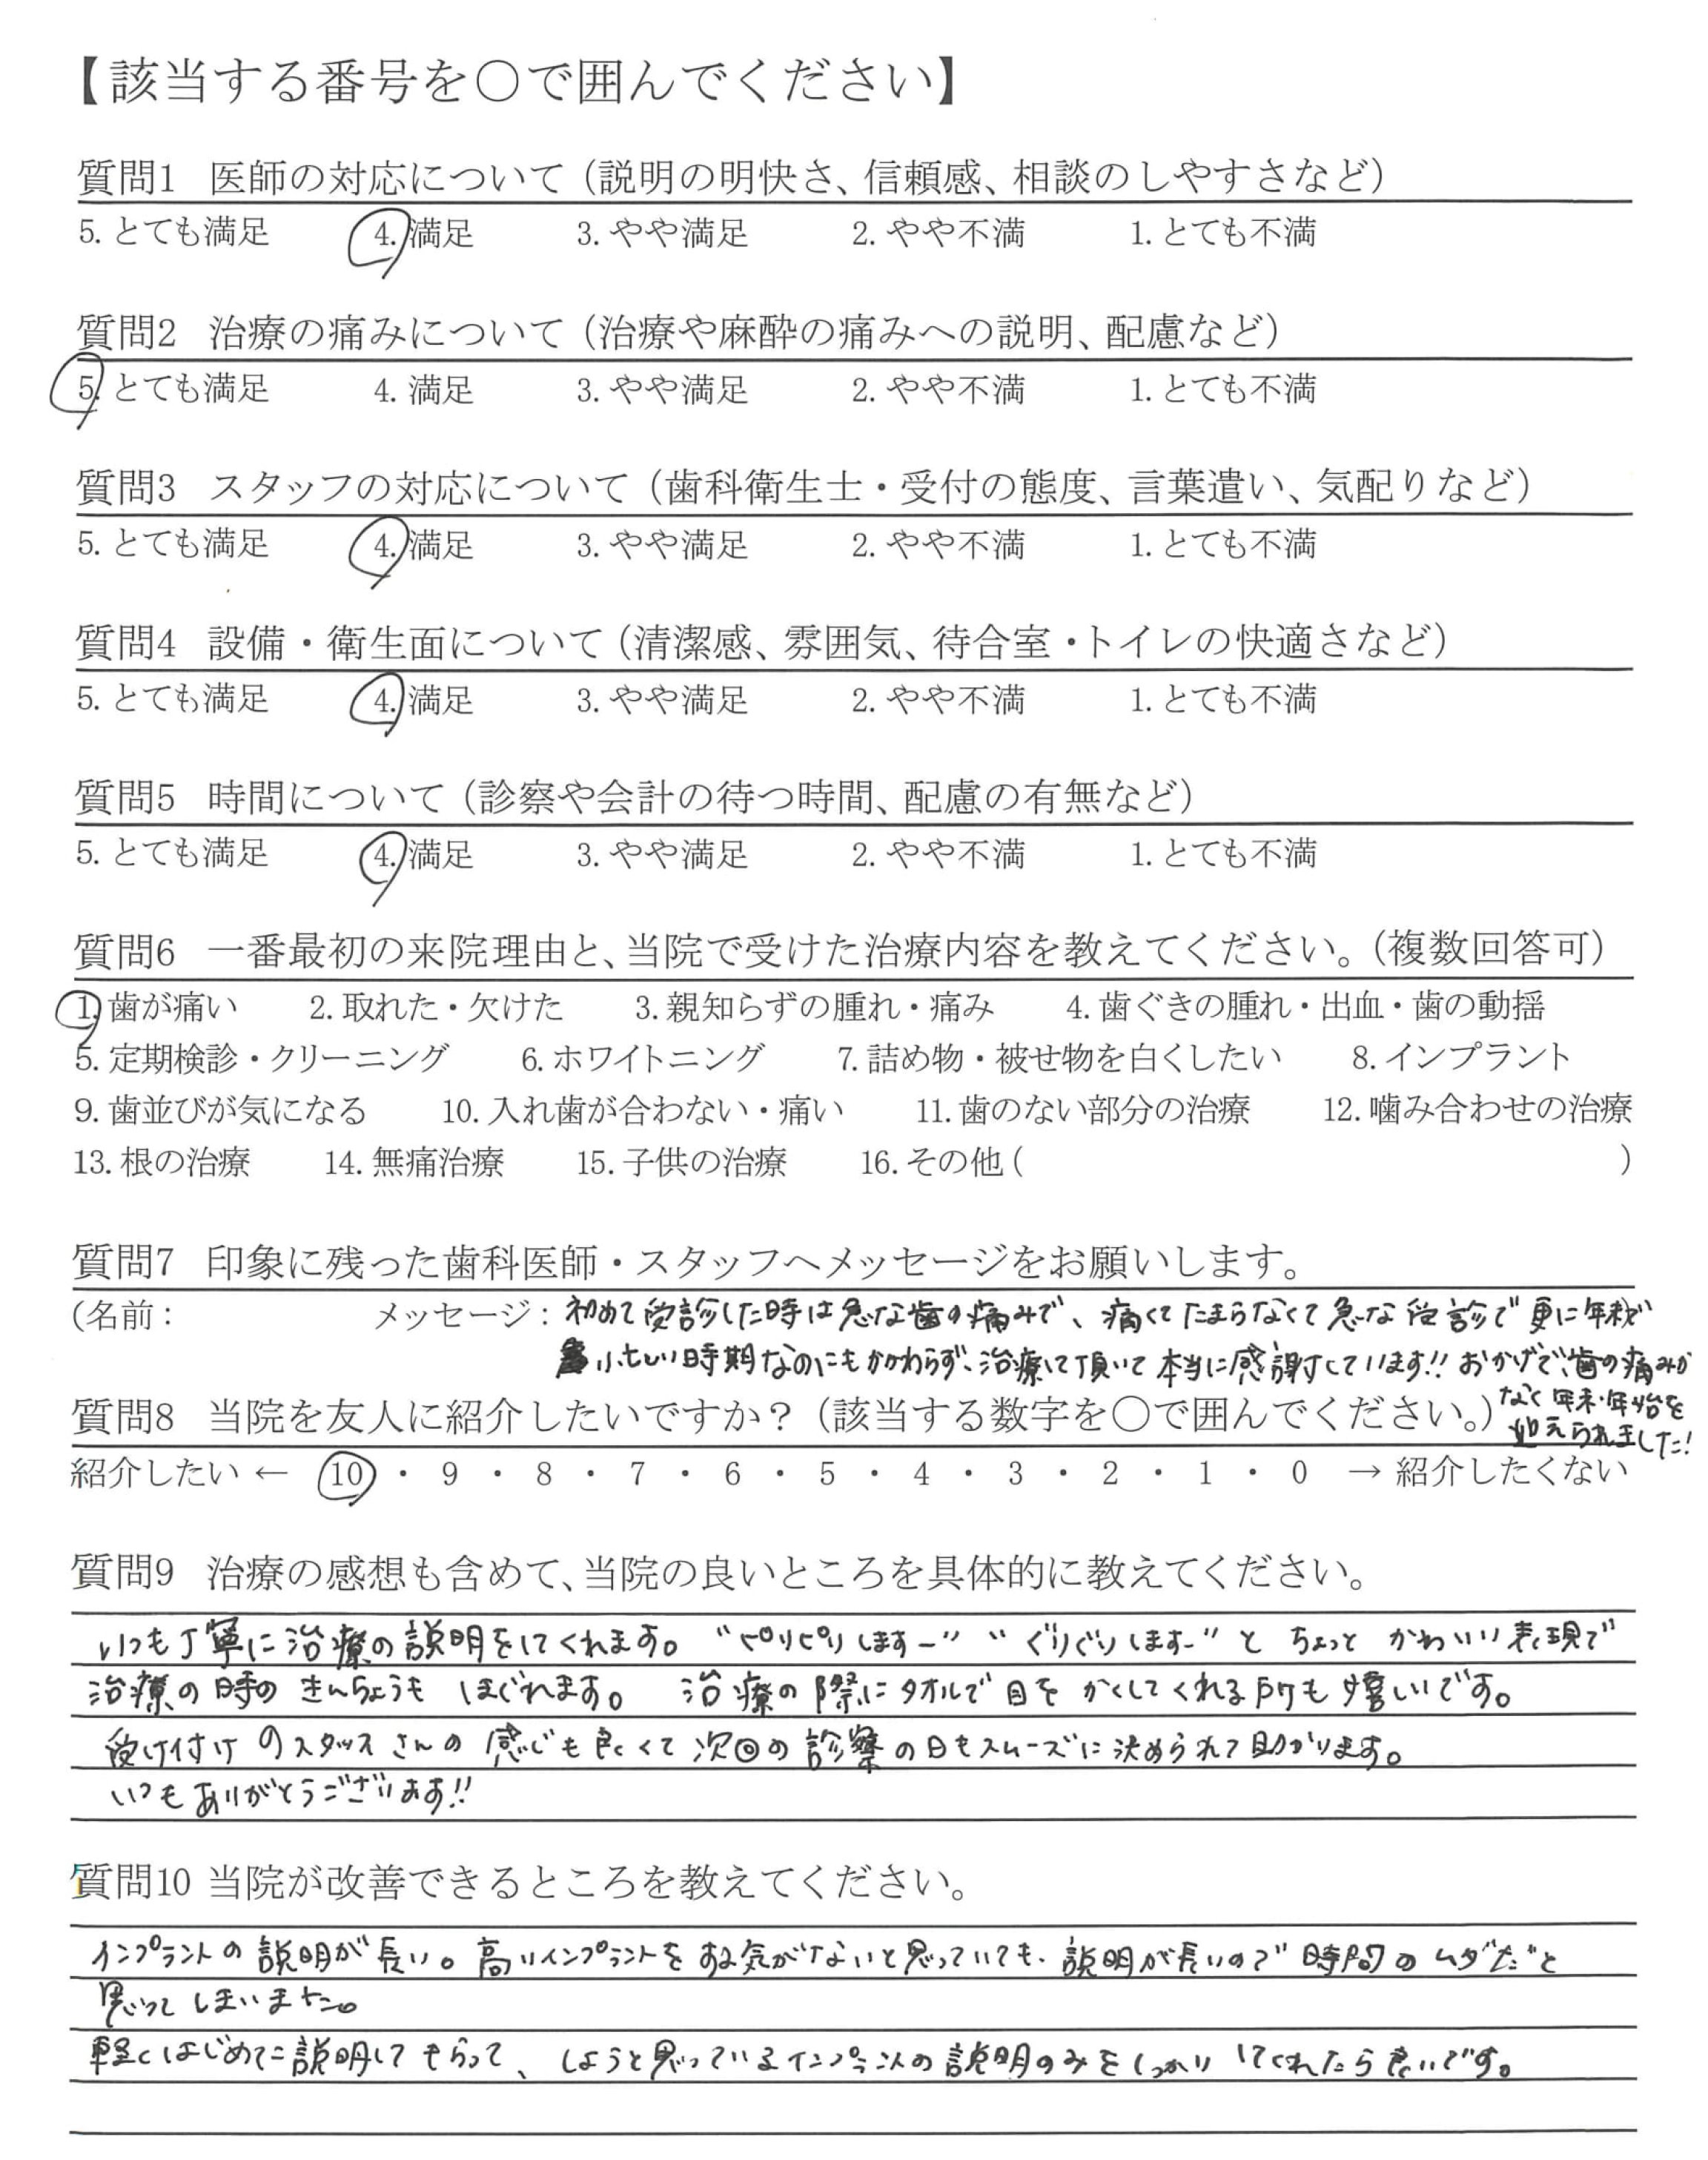 【該当する番号を○で囲んでください】
質問1 医師の対応について（説明の明快さ、信頼感、相談のしやすさなど）
5. とても満足 4. 満足 3. やや満足 2. やや不満 1. とても不満
質問2 治療の痛みについて（治療や麻酔の痛みへの説明、配慮など）
5. とても満足 4. 満足 3. やや満足 2. やや不満 1. とても不満
質問3 スタッフの対応について（歯科衛生士・受付の態度、言葉遣い、気配りなど）
5. とても満足 4. 満足 3. やや満足 2. やや不満 1. とても不満
質問4 設備・衛生面について（清潔感、雰囲気、待合室・トイレの快適さなど）
5. とても満足 4. 満足 3. やや満足 2. やや不満 1. とても不満
質問5 時間について（診察や会計の待つ時間、配慮の有無など）
5. とても満足 4. 満足 3. やや満足 2. やや不満 1. とても不満
質問6 一番最初の来院理由と、当院で受けた治療内容を教えてください。（複数回答可）
1. 歯が痛い 2. 取れた・欠けた 3. 親知らずの腫れ・痛み 4. 歯ぐきの腫れ・出血・歯の動揺
5. 定期検診・クリーニング 6. ホワイトニング 7. 詰め物・被せ物を白くしたい 8. インプラント
9. 歯並びが気になる 10. 入れ歯が合わない・痛い 11. 歯のない部分の治療 12. 噛み合わせの治療
13. 根の治療 14. 無痛治療 15. 子供の治療 16. その他（ ）
質問7 印象に残った歯科医師・スタッフへメッセージをお願いします。
(名前： メッセージ：初めて受診した時は急な歯の痛みで、痛くてたまらなくて急な受診で更に年秋で
忙しい時期なのにもかかわらず、治療して頂いて本当に感謝しています!! おかげで、歯の痛みが
なく年末・年始を
迎えられました！
質問8 当院を友人に紹介したいですか？（該当する数字を○で囲んでください。）
紹介したい ← 10 ・ 9 ・ 8 ・ 7 ・ 6 ・ 5 ・ 4 ・ 3 ・ 2 ・ 1 ・ 0 → 紹介したくない
質問9 治療の感想も含めて、当院の良いところを具体的に教えてください。
いつも丁寧に治療の説明をしてくれます。“ピリピリしますー” “ぐりぐりしますー” と ちょっと かわいい表現で
治療の時の きんちょうも ほぐれます。 治療の際にタオルで目を かくしてくれる所も嬉しいです。
受け付けのスタッフさんの感じも良くて次回の診察の日もスムーズに決められて助かります。
いつもありがとうございます!!
質問10 当院が改善できるところを教えてください。
インプラントの説明が長い。高いインプラントをする気がないと思っていても、説明が長いので時間のムダだと
思ってしまいました。
軽くはじめてに説明してもらって、しようと思っているインプラントの説明のみをしっかりしてくれたら良いです。